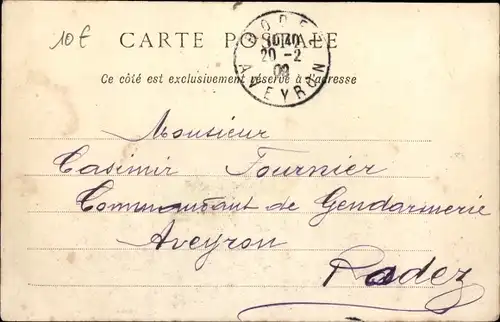 10 €
CARTE POSTALE
RODEZ
10 40
20 - 2
AVEYRON
Ce côté est exclusivement réservé à l'adresse
Monsieur
Casimir Fournier
Commandant de Gendarmerie
Aveyron
Rodez